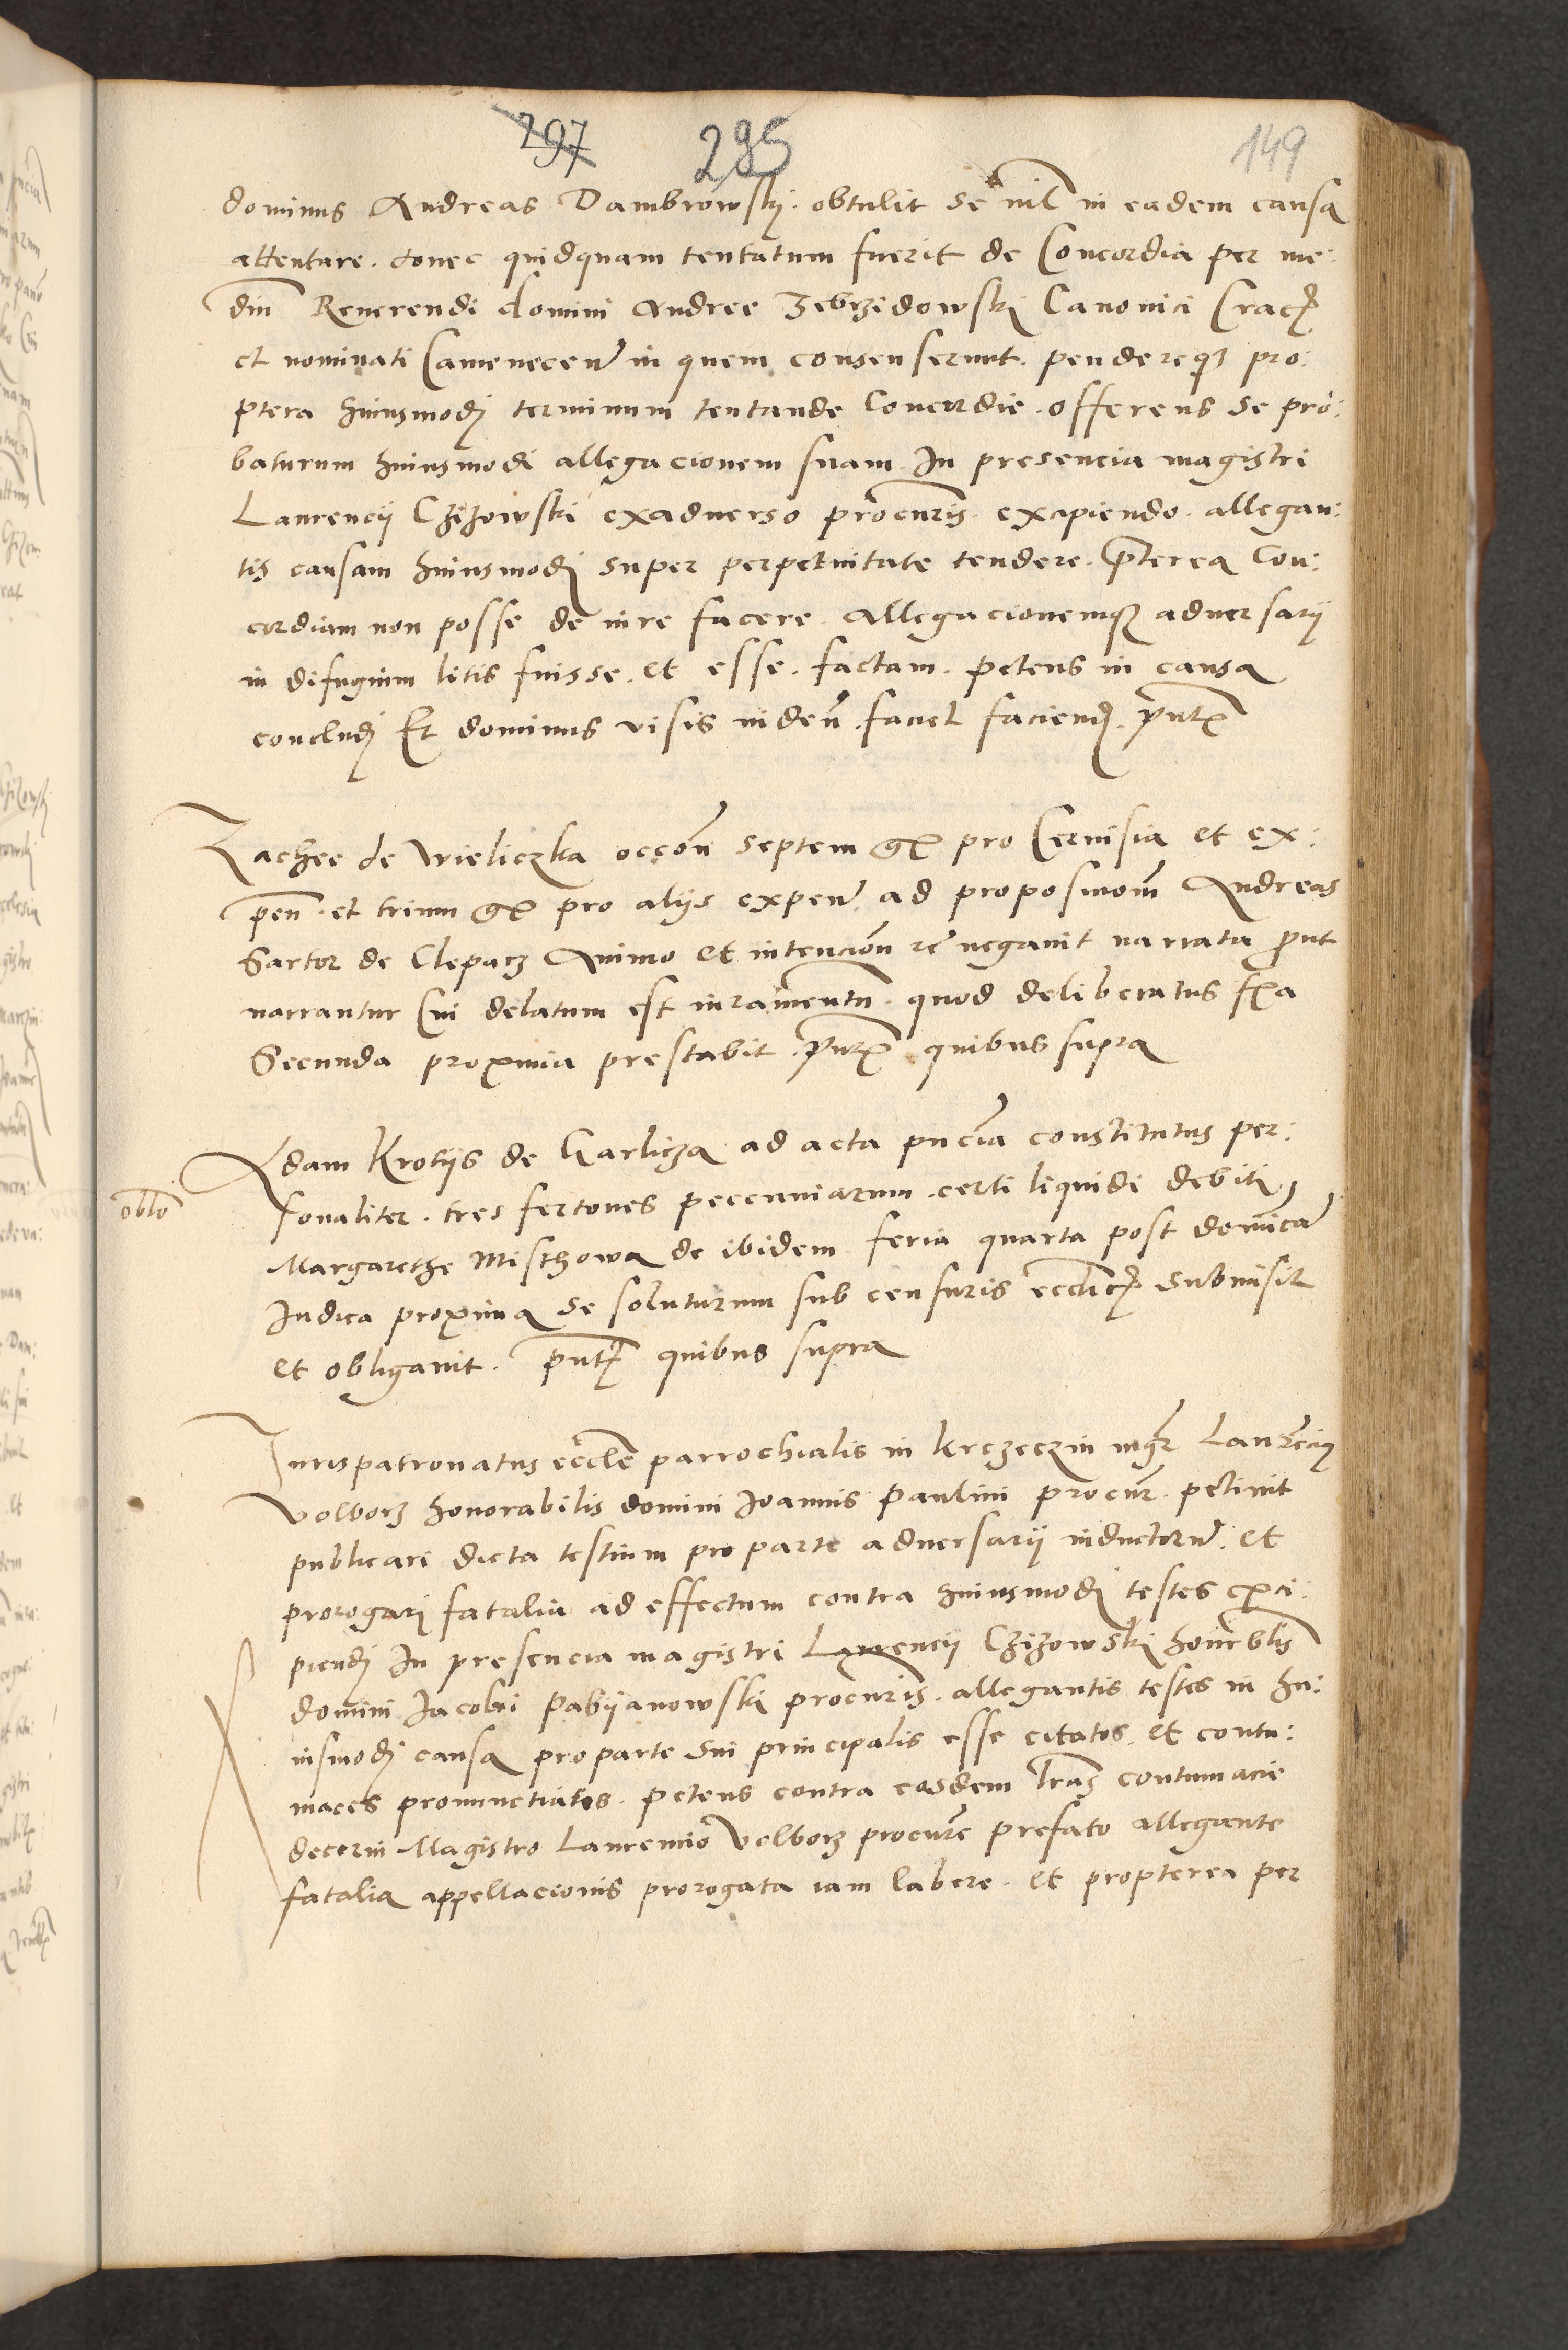 297 295 149
dominus Andreas Dambrowskj. obtulit se nil in eadem causa
attentare. donec quidquam tentatum fuerit de Concordia per me:
diu Reuerendi domini Andree Zebrzidowskj Canonici Crac
et nominati Camenecen in quem consenserunt. pendereq pro:
ptera huiusmodj terminum tentande Concordie. offerens se pro:
baturum huiusmodi allegacionem suam. In presencia magistri
Laurencij Czizowski exaduerso procuris. excipiendo. allegan:
tis causam huiusmodj super perpetuitate tendere. pterea Con:
cordiam non posse de iure facere. Allegacionemq aduersarij
in difugium litis fuisse. et esse. factam. petens in causa
concludj Et dominus visis viden. fauet faciendj. pntx
Zachee de Wieliczka occon septem gr pro Ceruisia et ex:
pen. et trium gr pro alijs expen. ad proposicionem Andreas
Sartor de Cleparz Animo et intencion re negauit narrata put
narrantur Cui delatum est iuramentu. quod deliberatus fra
Secunda proxima prestabit. pntx quibus supra
oblo
Adam Krotijs de Garlicza ad acta pncia constitutus per:
sonaliter. tres fertones peccuniarum. certi liquidi debiti
Margarethe Misthowa de ibidem feria quarta post dominica
Iudica proxima se soluturum sub censuris ecclicj submisit
et obligauit. pntj quibus supra
Iurispatronatus eccle parrochialis in Krczeczin mgr Laurecius
Volborz honorabilis domini Ioannis Paulini procur. petiuit
publicari dicta testium pro parte aduersarij inductoru. et
prorogarj fatalia ad effectum contra huiusmodj testes exci:
piendj In presencia magistri Laurencij Czizowski honorblis
domini Iacobi Pabijanowski procuris. allegantis testes in hu:
iusmodj causa pro parte sui principalis esse citatos. et contu:
maces pronunctiatos. petens contra eosdem lras contumacie
decerni Magistro Laurencio Volborz procure prefato allegante
fatalia appellacionis prorogata iam labere. et propterea per